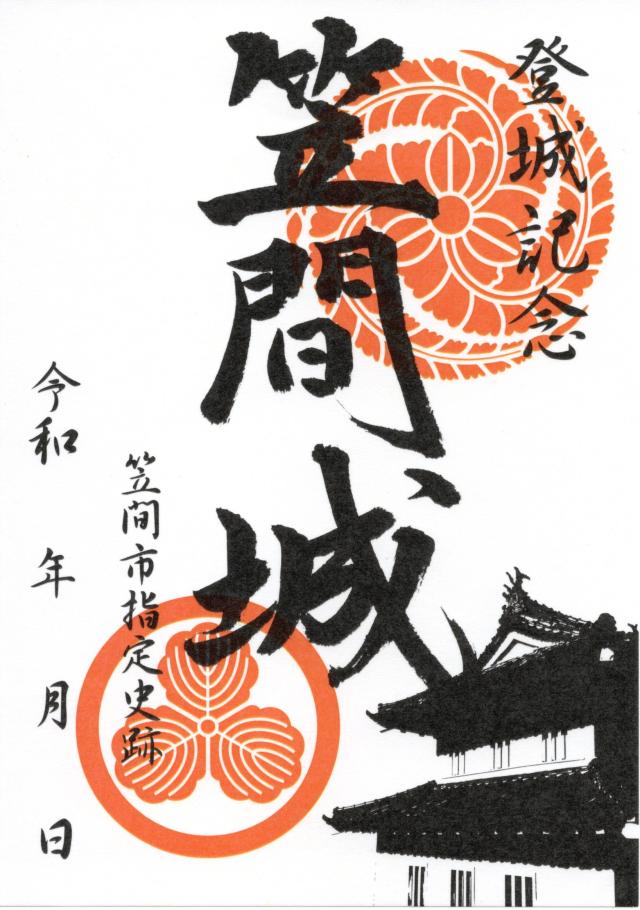 登城記念
笠間城
笠間市指定史跡
令和 年 月 日